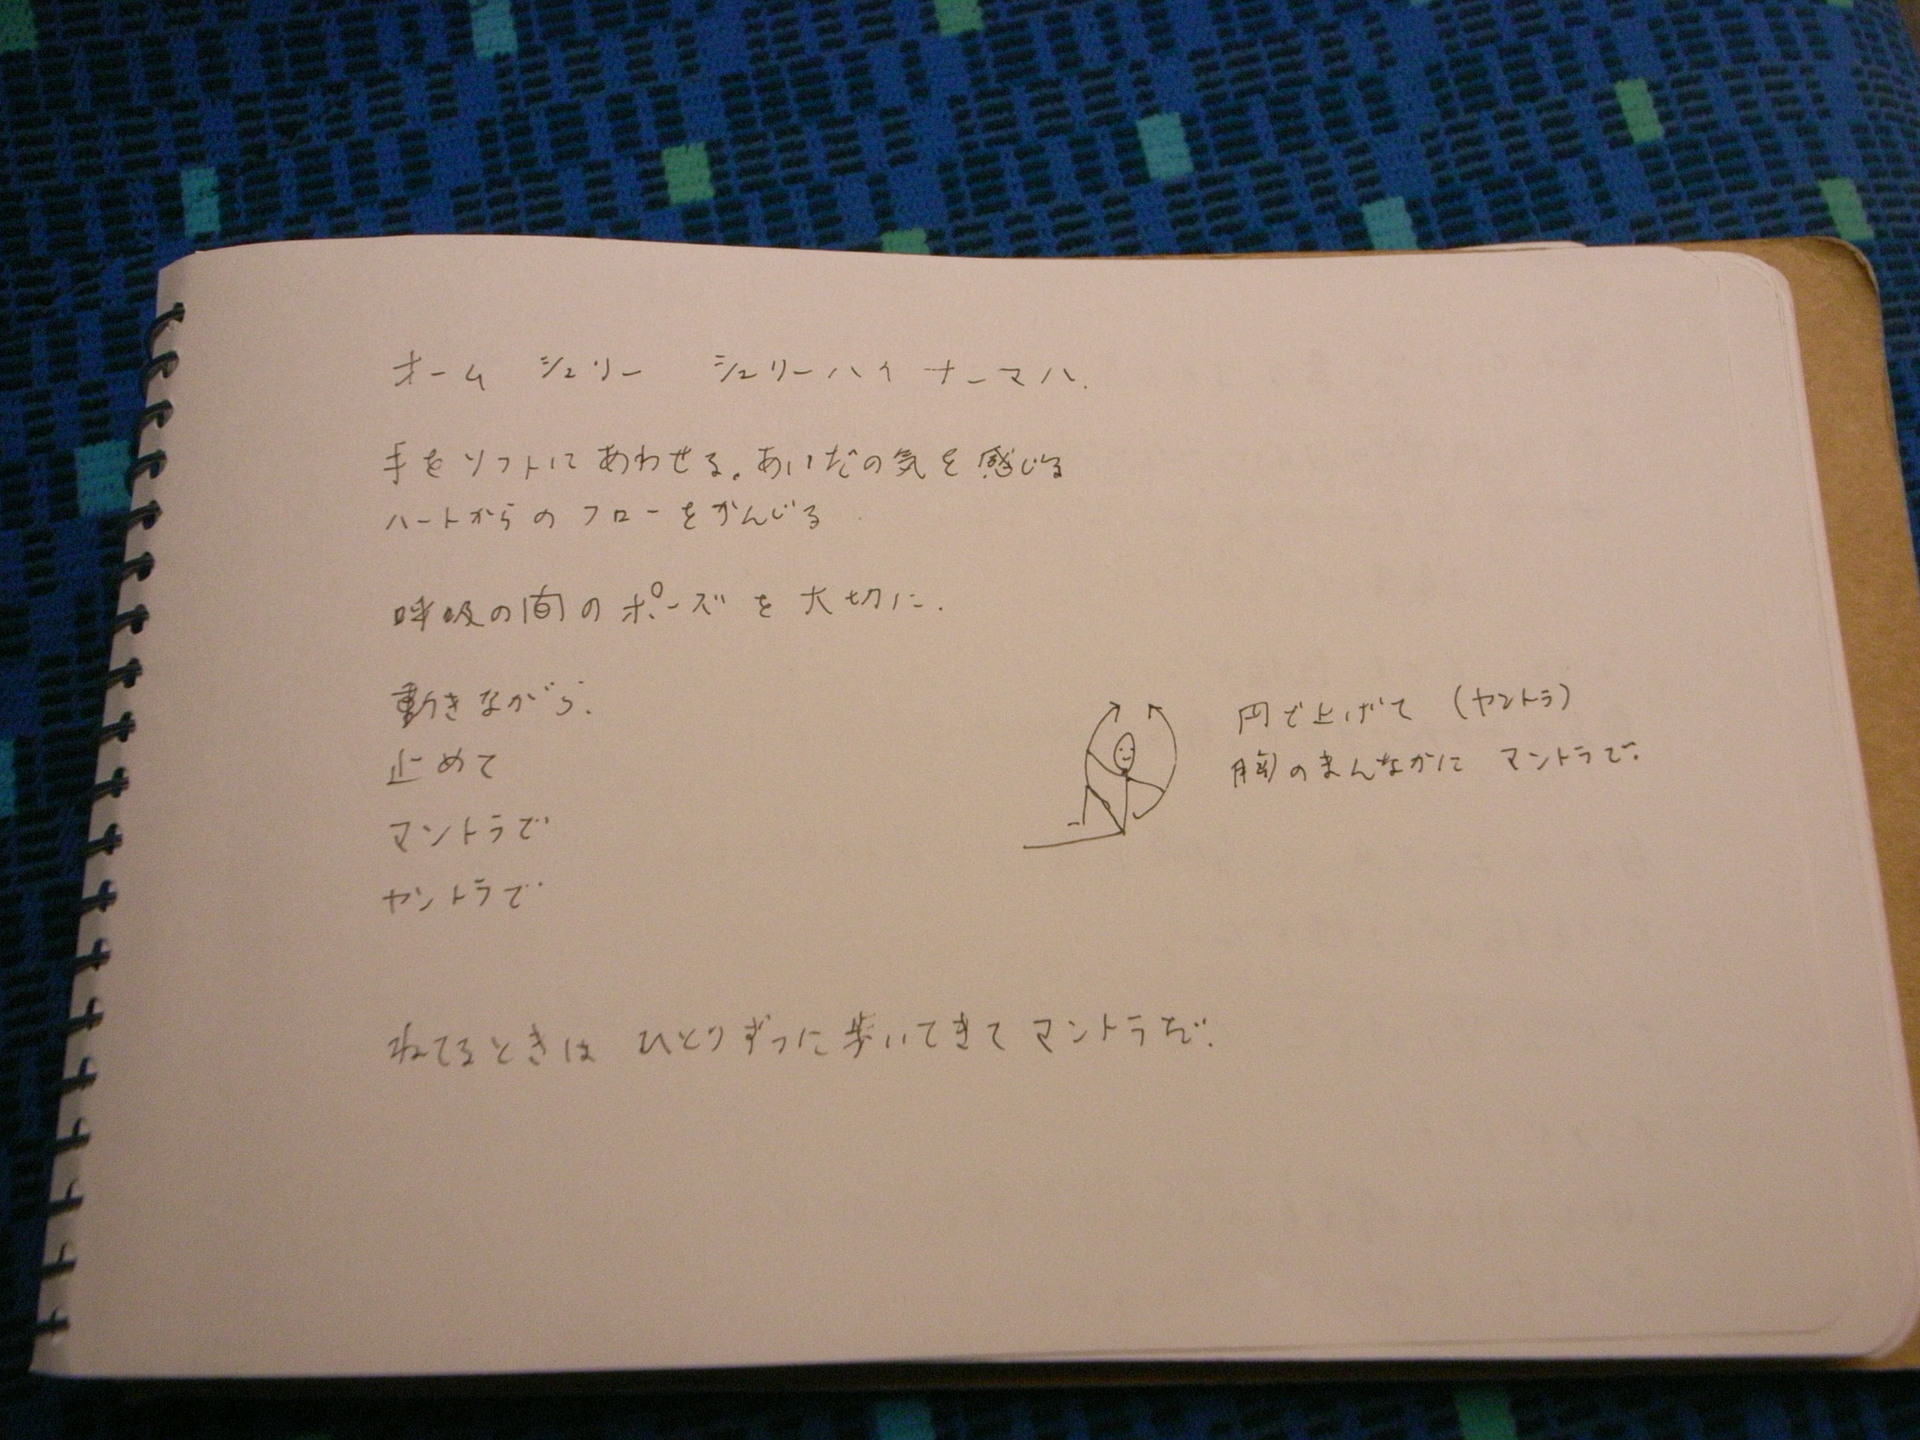 オーム シュリー シュリーハイ ナーマハ.
手をソフトにあわせる。あいだの気を感じる
ハートからのフローをかんじる
呼吸の間のポーズを大切に.
動きながら.
止めて
マントラで
ヤントラで
円で上げて (ヤントラ)
胸のまんなかに マントラで.
ねてるときは ひとりずつに歩いてきてマントラだ.